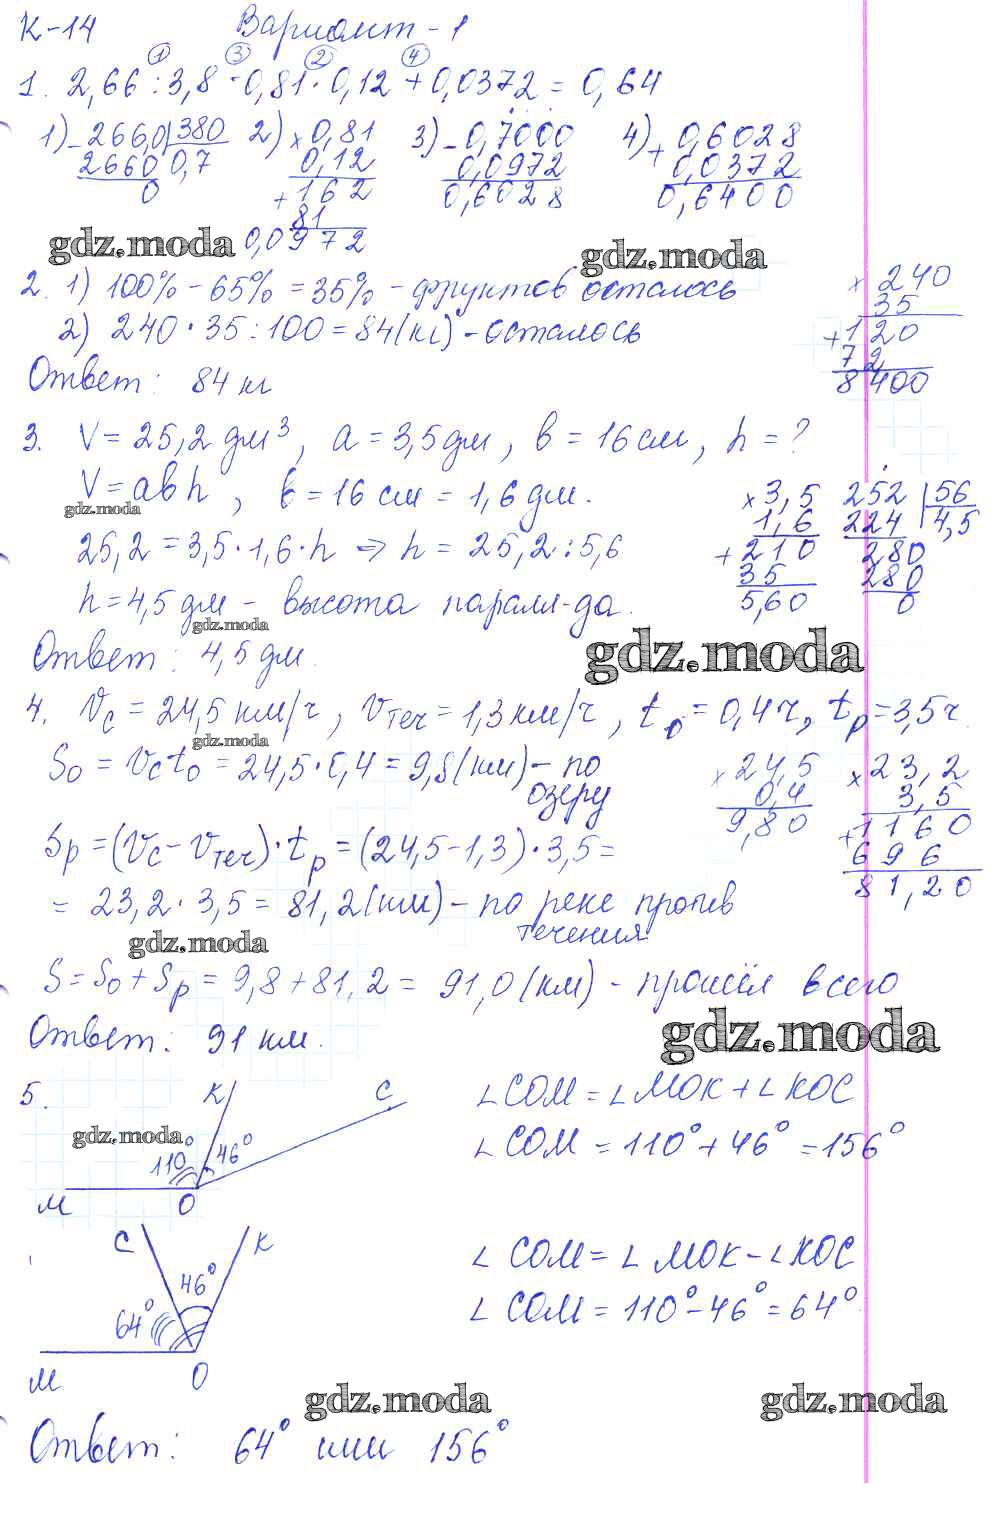 К-14 Вариант - 1
① ③ ② ④
1. 2,66 : 3,8 - 0,81 · 0,12 + 0,0372 = 0,64
1) 266,0 | 380 2) × 0,81 3) - 0,7000 4) + 0,6028
2660 0,7 0,12 0,0972 0,0372
0 + 162 0,6028 0,6400
81
gdz.moda 0,0972 gdz.moda
2. 1) 100% - 65% = 35% - фруктов осталось × 240
35
2) 240 · 35 : 100 = 84 (кг) - осталось + 120
72
Ответ: 84 кг 8400
3. V = 25,2 дм³, a = 3,5 дм, b = 16 см, h = ?
V = abh, b = 16 см = 1,6 дм. × 3,5 252 | 56
gdz.moda 1,6 224 4,5
25,2 = 3,5 · 1,6 · h ⇒ h = 25,2 : 5,6 + 210 280
35 280
h = 4,5 дм - высота паралл-да. 5,60 0
gdz.moda
Ответ: 4,5 дм. gdz.moda
4. Vc = 24,5 км/ч, Vтеч = 1,3 км/ч, to = 0,4 ч, tp = 3,5 ч.
gdz.moda
So = Vc to = 24,5 · 0,4 = 9,8 (км) - по озеру × 24,5 × 23,2
0,4 3,5
9,80 + 1160
Sp = (Vc - Vтеч) · tp = (24,5 - 1,3) · 3,5 = 696
= 23,2 · 3,5 = 81,2 (км) - по реке против течения 81,20
gdz.moda
S = So + Sp = 9,8 + 81,2 = 91,0 (км) - прошёл всего
Ответ: 91 км. gdz.moda
5. K C ∠COM = ∠MOK + ∠KOC
gdz.moda
110° 46° ∠COM = 110° + 46° = 156°
M O
C K ∠COM = ∠MOK - ∠KOC
46°
64° ∠COM = 110° - 46° = 64°
M O
gdz.moda gdz.moda
Ответ: 64° или 156°